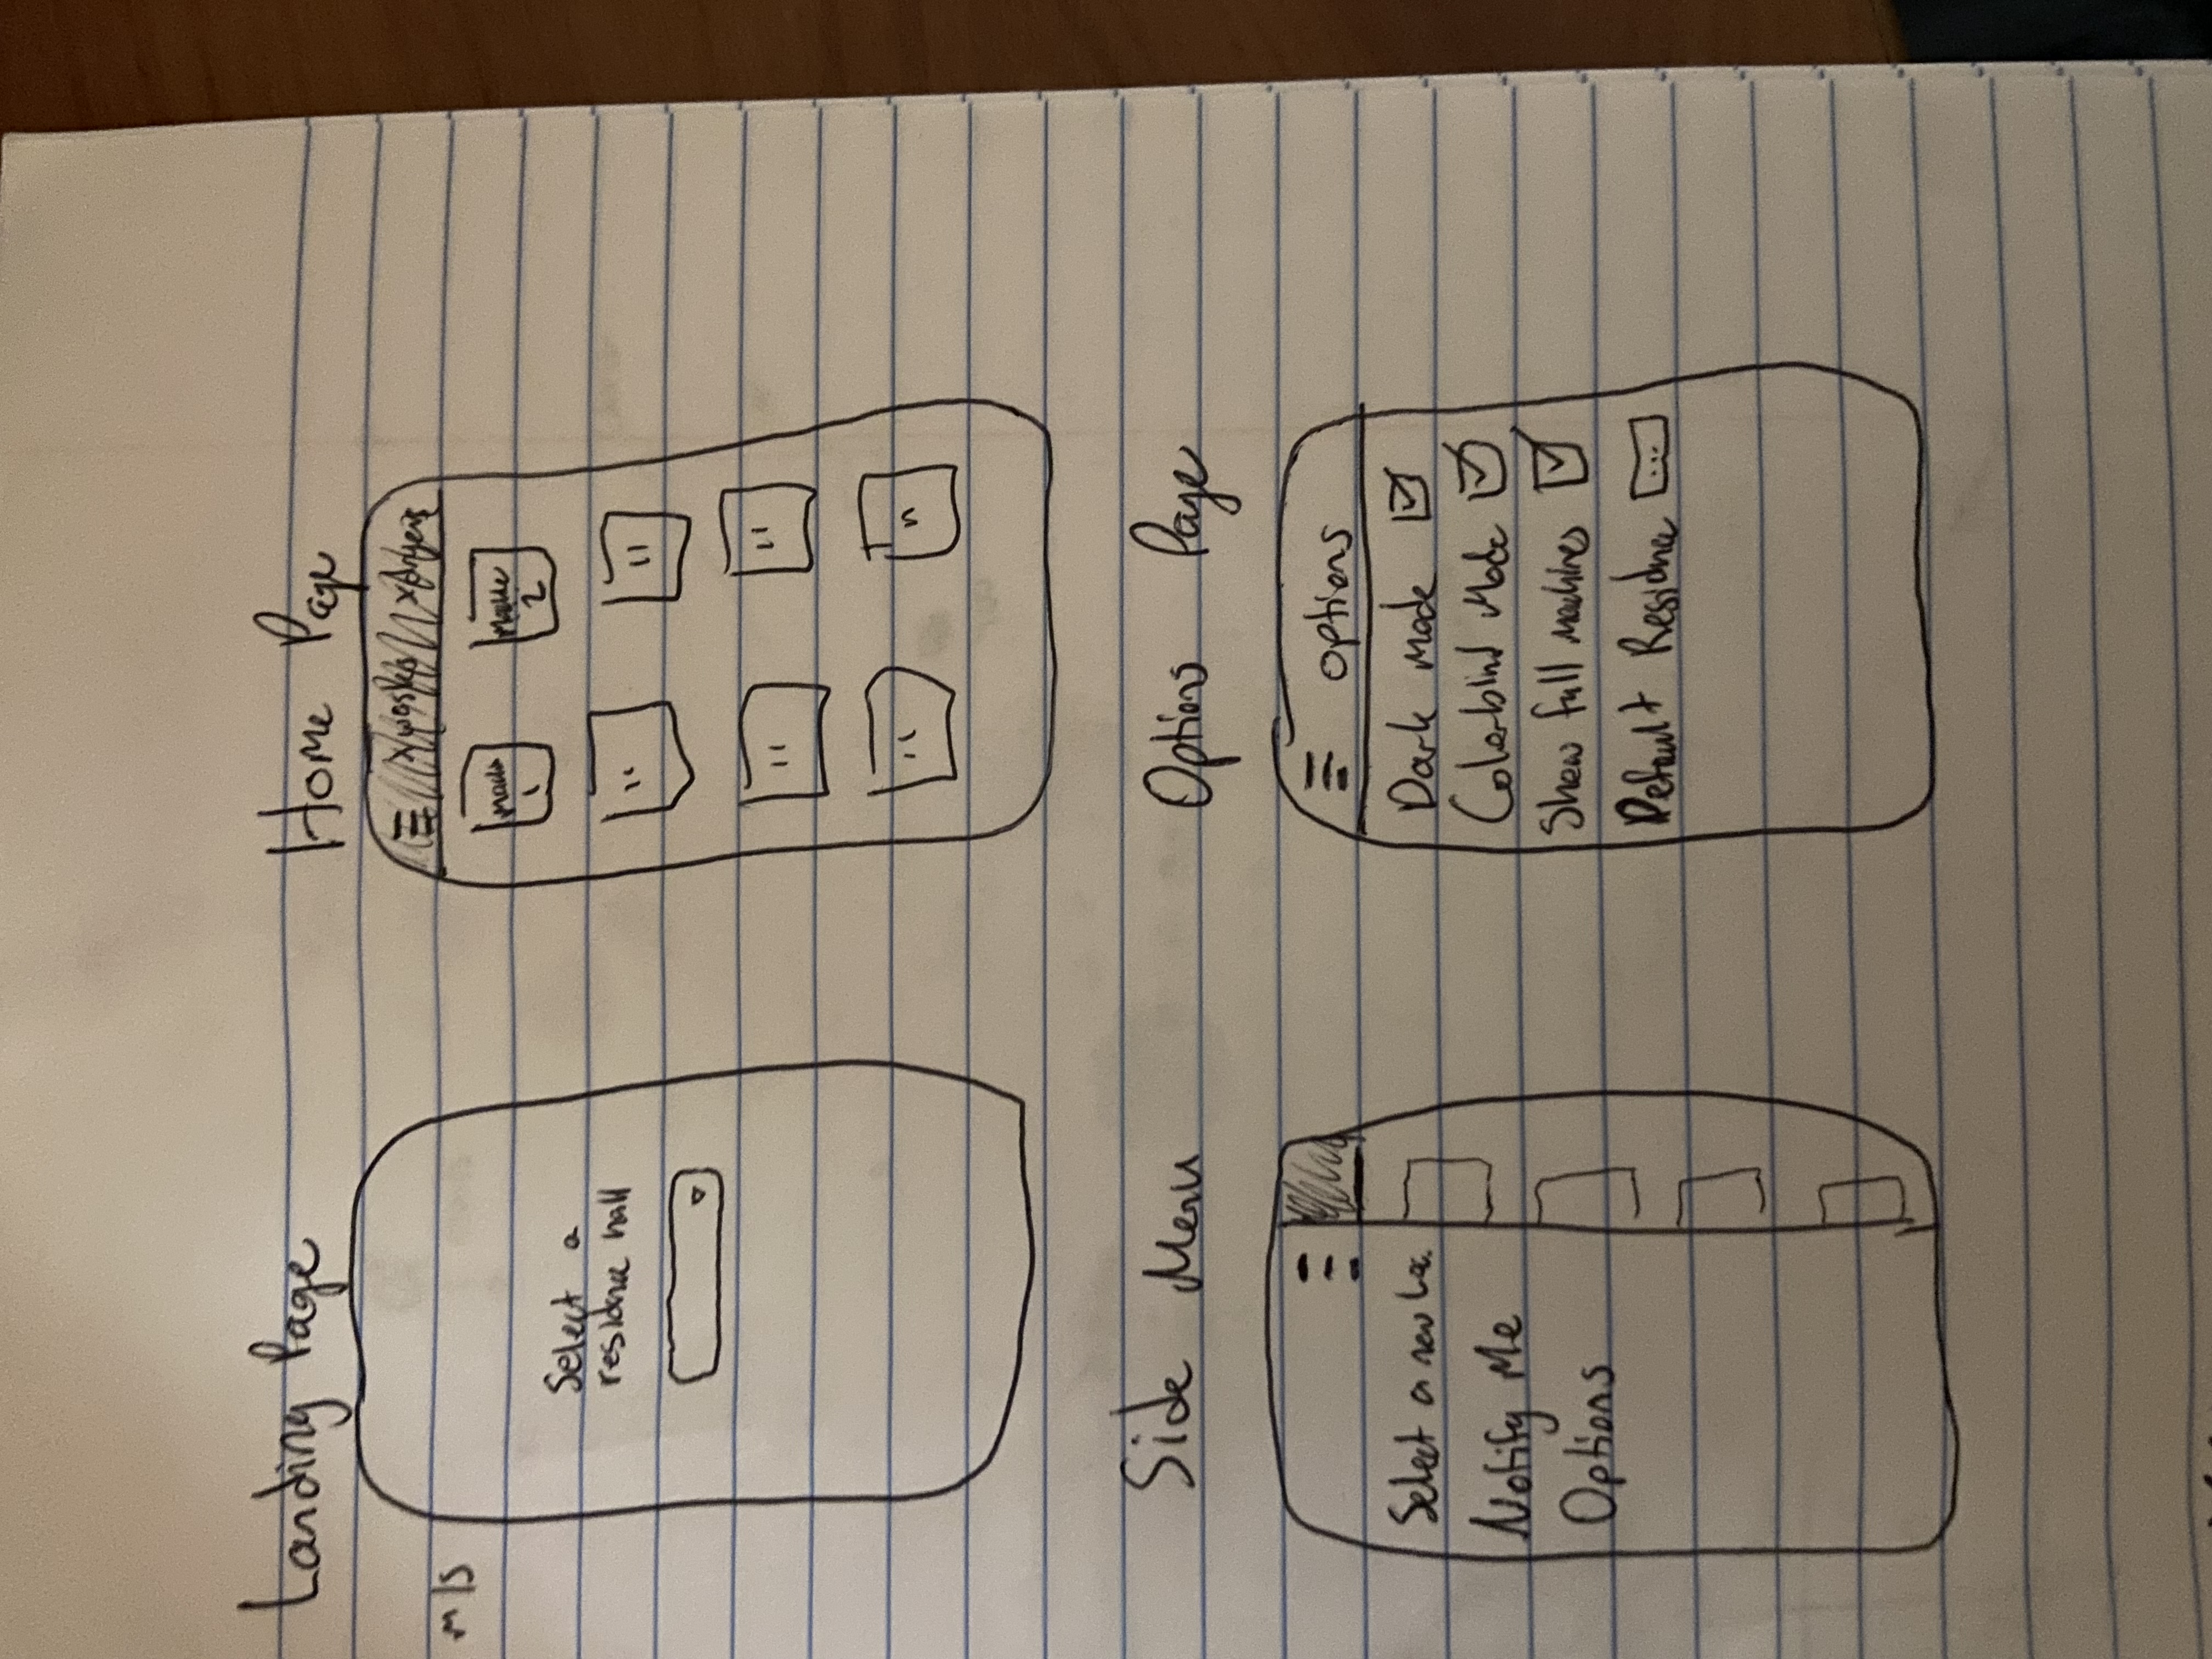 Landing Page
m/s
Select a
residence hall
Home Page
x washers x dryers
Machine 1
Machine 2
"
"
"
"
"
"
Side Menu
Select a new Loc.
Notify Me
Options
Options Page
options
Dark Mode
Colorblind Mode
Show full machines
Default Residence ...